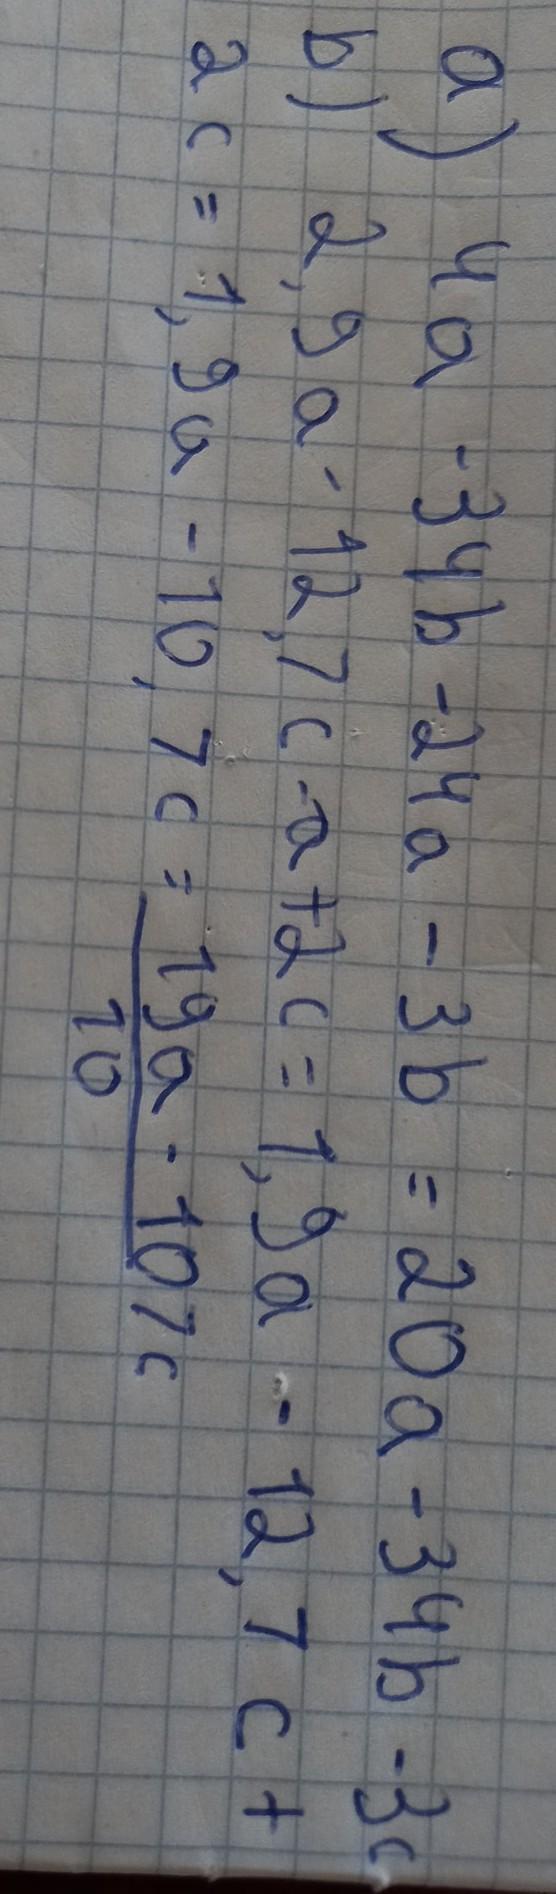 a) 4a - 34b - 24a - 3b = 20a - 34b - 3c
b) 2,9a - 12,7c - a + 2c = 1,9a - 12,7c +
2c = 1,9a - 10,7c = 19a - 107c
10